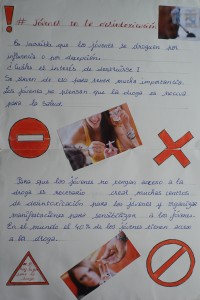 # Jóvenes en la desintoxicación
Es increíble que los jóvenes se droguen por
influencia o por decepción.
¿Cuál es interés de destruirse?
Se sirven de eso para tener mucha importancia.
Los jóvenes no piensan que la droga es nociva
para la salud.
Para que los jóvenes no tengan acceso a la
droga es necesario crear muchos centros
de desintoxicación para los jóvenes y organizar
manifestaciones para sensibilizar a los jóvenes.
En el mundo el 40% de los jóvenes tienen acceso
a la droga.